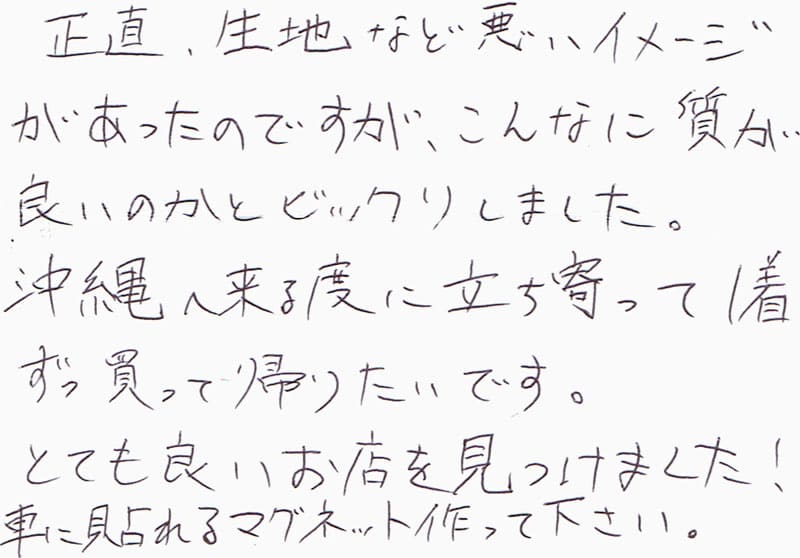 正直、生地など悪いイメージ
があったのですが、こんなに質が
良いのかとビックリしました。
沖縄へ来る度に立ち寄って1着
ずつ買って帰りたいです。
とても良いお店を見つけました!
車に貼れるマグネット作って下さい。